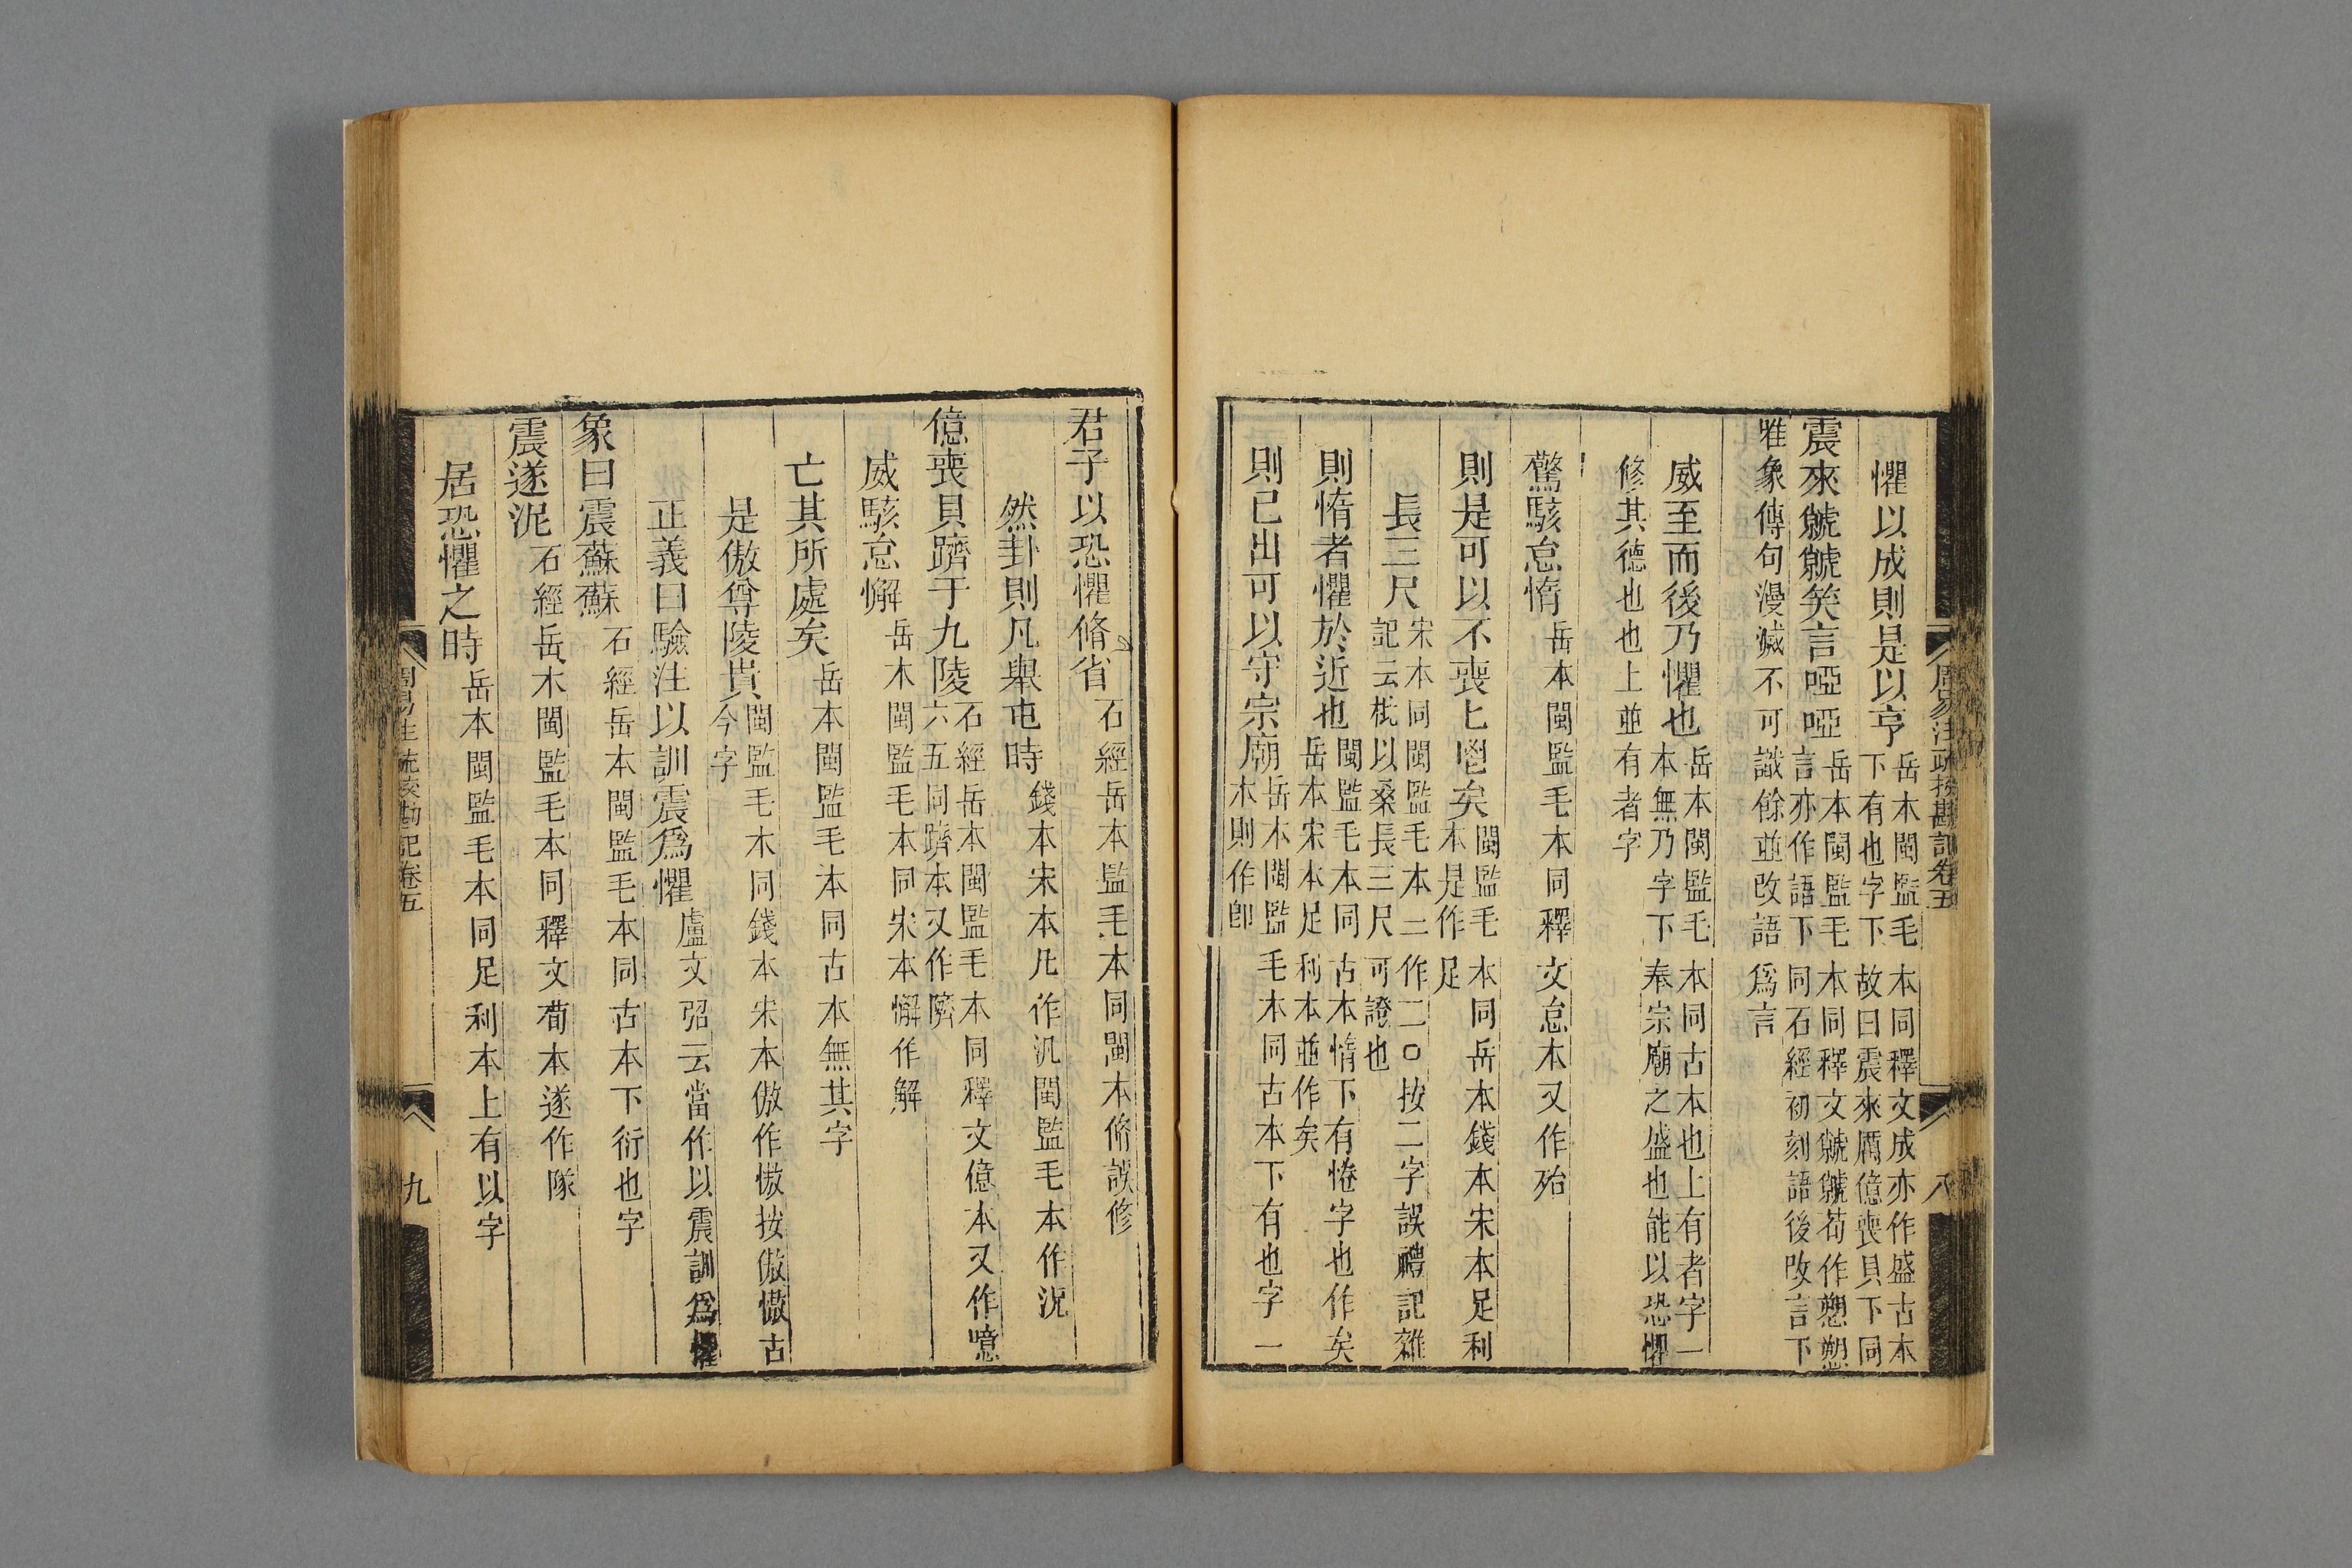 懼以成則是以亨岳本閩監毛本同釋文成亦作盛古本
下有也字下故曰震來厲億喪貝下同
震來虩虩笑言啞啞岳本閩監毛本同釋文虩虩荀作愬愬
言亦作語下同石經初刻語後改言下
雅象傳句漫滅不可識餘並改語爲言
威至而後乃懼也岳本閩監毛本同古本也上有者字一
本無乃字下奉宗廟之盛也能以恐懼
修其德也也上並有者字
驚駭怠惰岳本閩監毛本同釋文怠本又作殆
則是可以不喪匕鬯矣閩監毛本同岳本錢本宋本足利
本是作足
長三尺宋本同閩監毛本三作二○按二字誤禮記雜
記云枇以桑長三尺可證也
則惰者懼於近也閩監毛本同古本惰下有惓字也作矣
岳本宋本足利本並作矣
則已出可以守宗廟岳本閩監毛本同古本下有也字一
本則作卽
周易注疏挍勘記卷五
八
君子以恐懼脩省石經岳本監毛本同閩本脩誤修
然卦則凡舉屯時錢本宋本凡作汎閩監毛本作況
億喪貝躋于九陵石經岳本閩監毛本同釋文億本又作噫
六五同躋本又作隮
威駭怠懈岳本閩監毛本同宋本懈作解
亡其所處矣岳本閩監毛本同古本無其字
是傲尊陵貴閩監毛本同錢本宋本傲作慠按傲慠古
今字
正義曰驗注以訓震爲懼盧文弨云當作以震訓爲懼
象曰震蘇蘇石經岳本閩監毛本同古本下衍也字
震遂泥石經岳本閩監毛本同釋文荀本遂作隊
居恐懼之時岳本閩監毛本同足利本上有以字
周易注疏挍勘記卷五
九